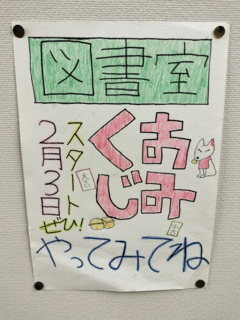 図書室
おみ
くじ
スタート
2月3日
ぜひ!
やってみてね